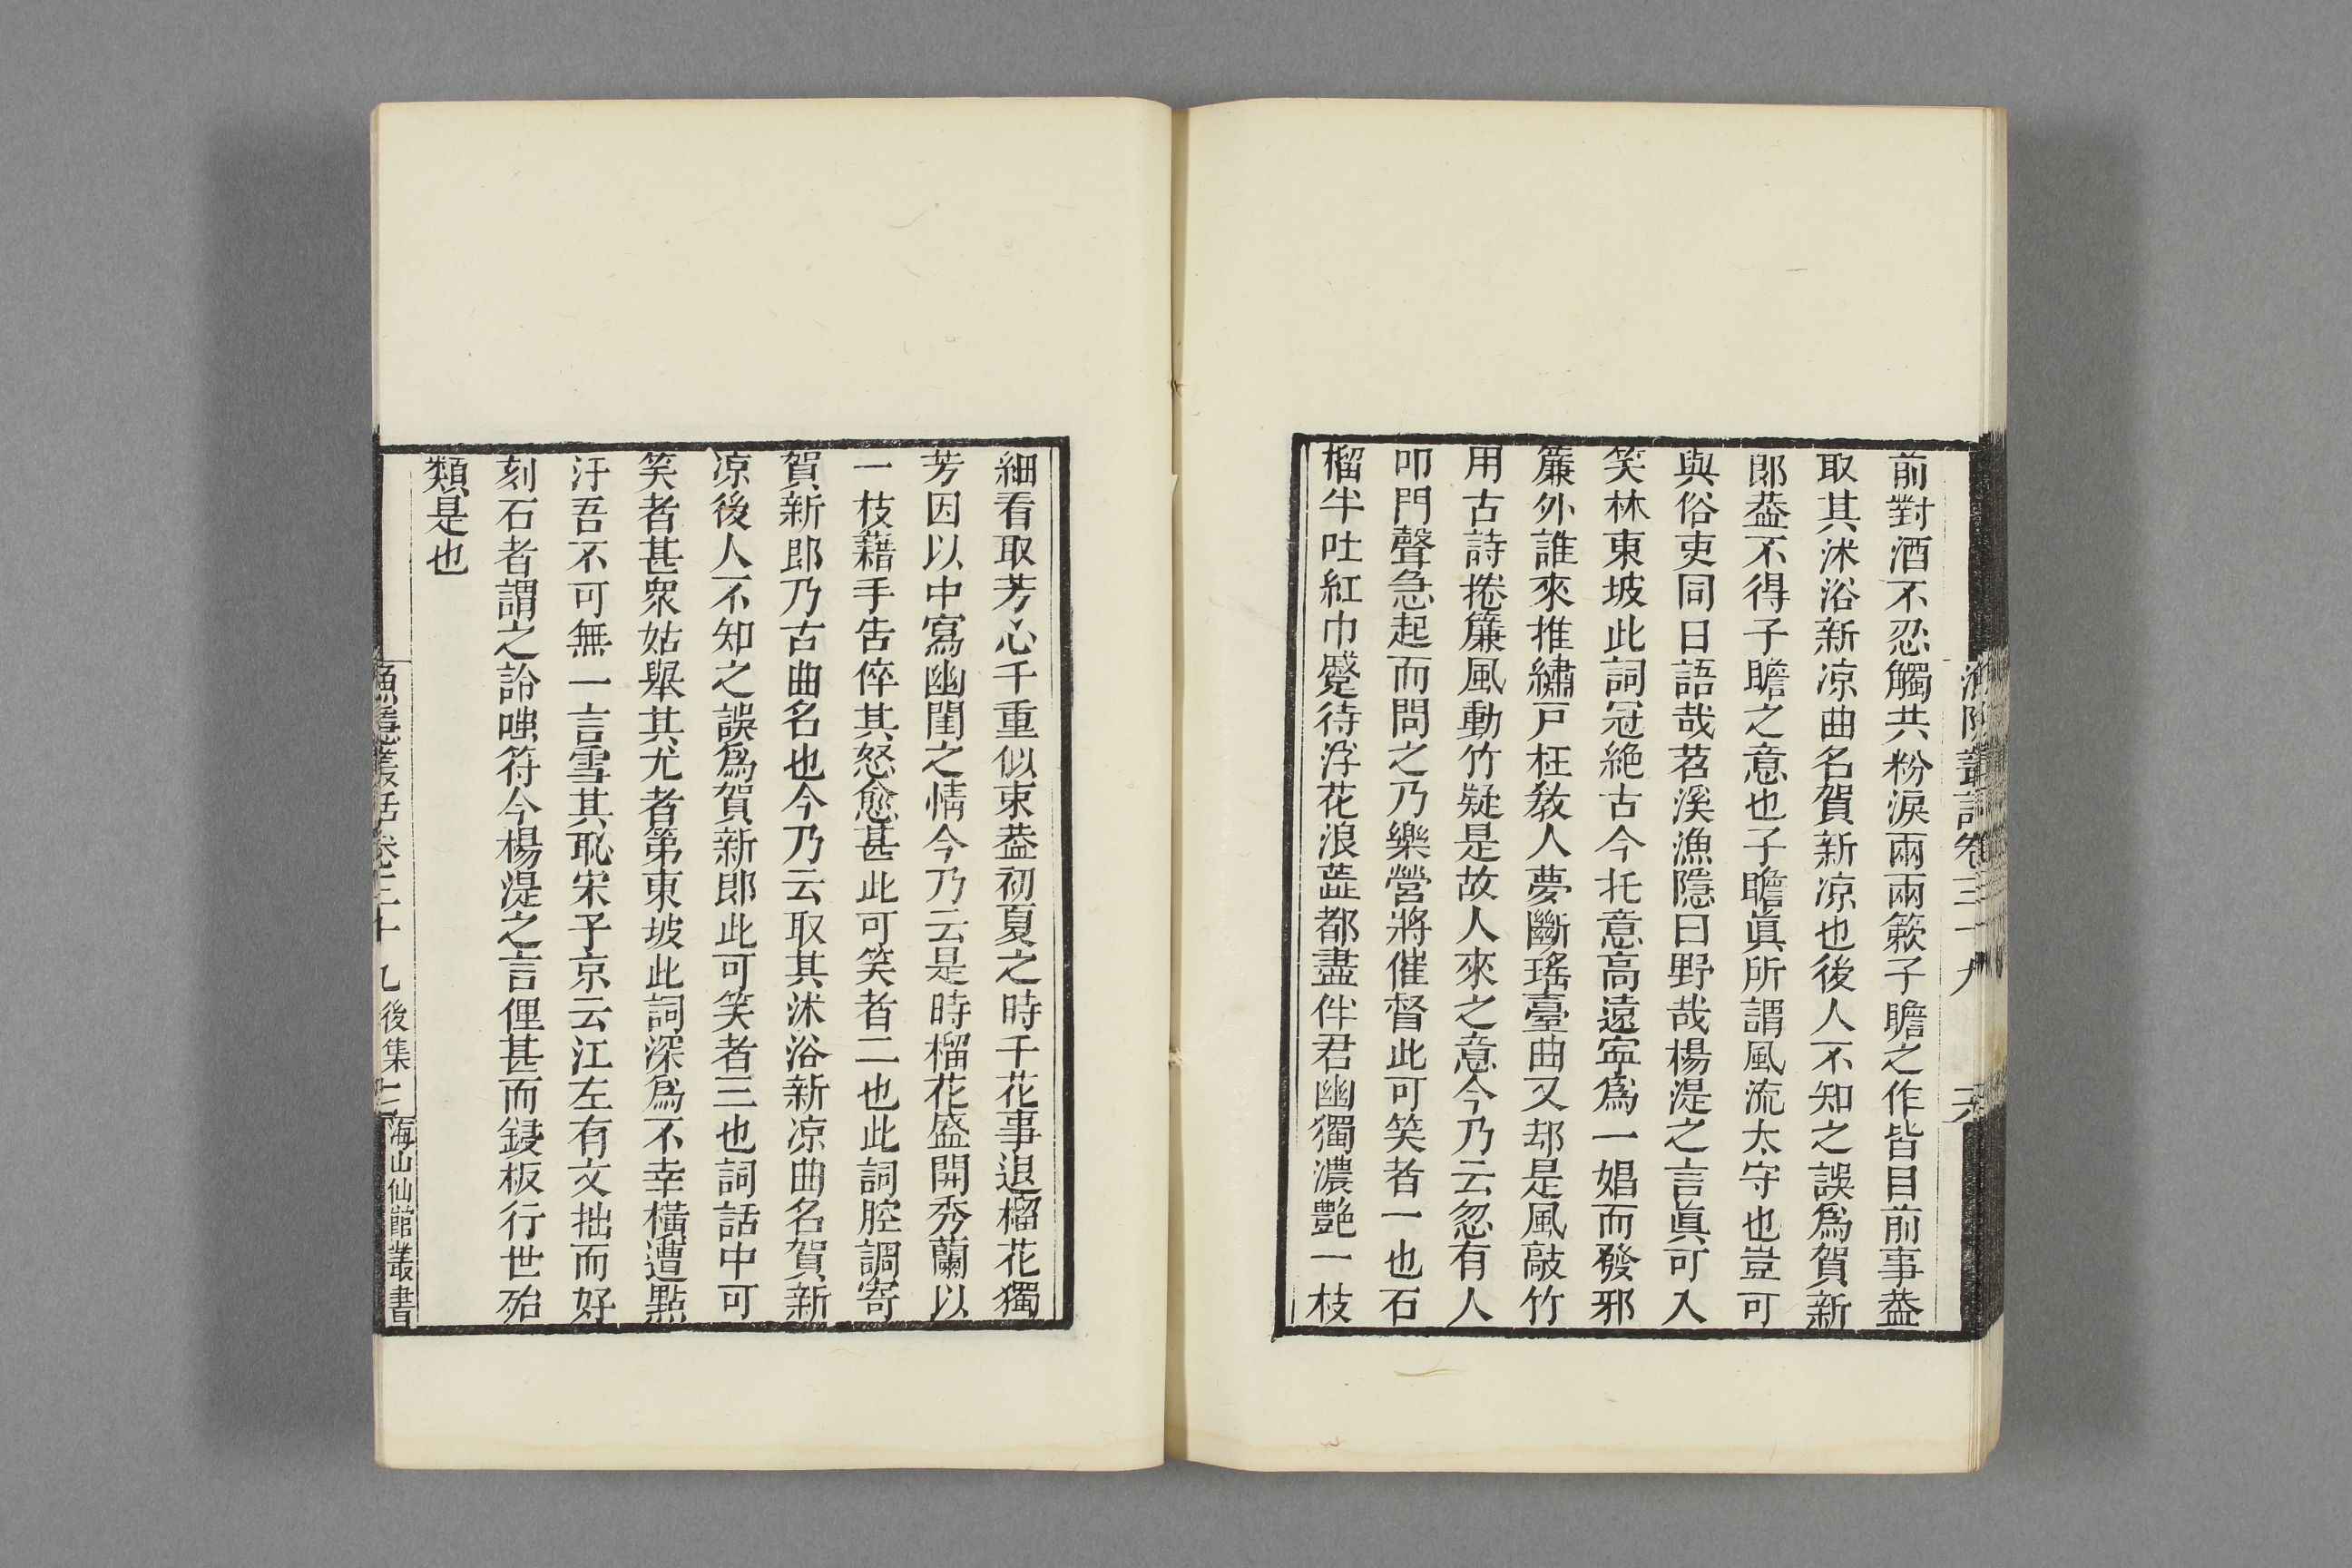 漁隱叢話卷三十九 六
前對酒不忍觸共粉淚兩兩簌子瞻之作皆目前事葢
取其沐浴新凉曲名賀新凉也後人不知之誤爲賀新
郎葢不得子瞻之意也子瞻眞所謂風流太守也豈可
與俗吏同日語哉苕溪漁隱曰野哉楊湜之言眞可入
笑林東坡此詞冠絶古今托意高遠寧爲一娼而發邪
簾外誰來推繡戸枉敎人夢斷瑤臺曲又却是風敲竹
用古詩捲簾風動竹疑是故人來之意今乃云忽有人
叩門聲急起而問之乃樂營將催督此可笑者一也石
榴半吐紅巾蹙待浮花浪蘂都盡伴君幽獨濃艷一枝
細看取芳心千重似束葢初夏之時千花事退榴花獨
芳因以中寫幽閨之情今乃云是時榴花盛開秀蘭以
一枝藉手告倅其怒愈甚此可笑者二也此詞腔調寄
賀新郎乃古曲名也今乃云取其沐浴新凉曲名賀新
凉後人不知之誤爲賀新郎此可笑者三也詞話中可
笑者甚衆姑舉其尤者第東坡此詞深爲不幸橫遭點
汙吾不可無一言雪其恥宋子京云江左有文拙而好
刻石者謂之詅嗤符今楊湜之言俚甚而鋟板行世殆
類是也
漁隱叢話卷三十九後集 海山仙館叢書